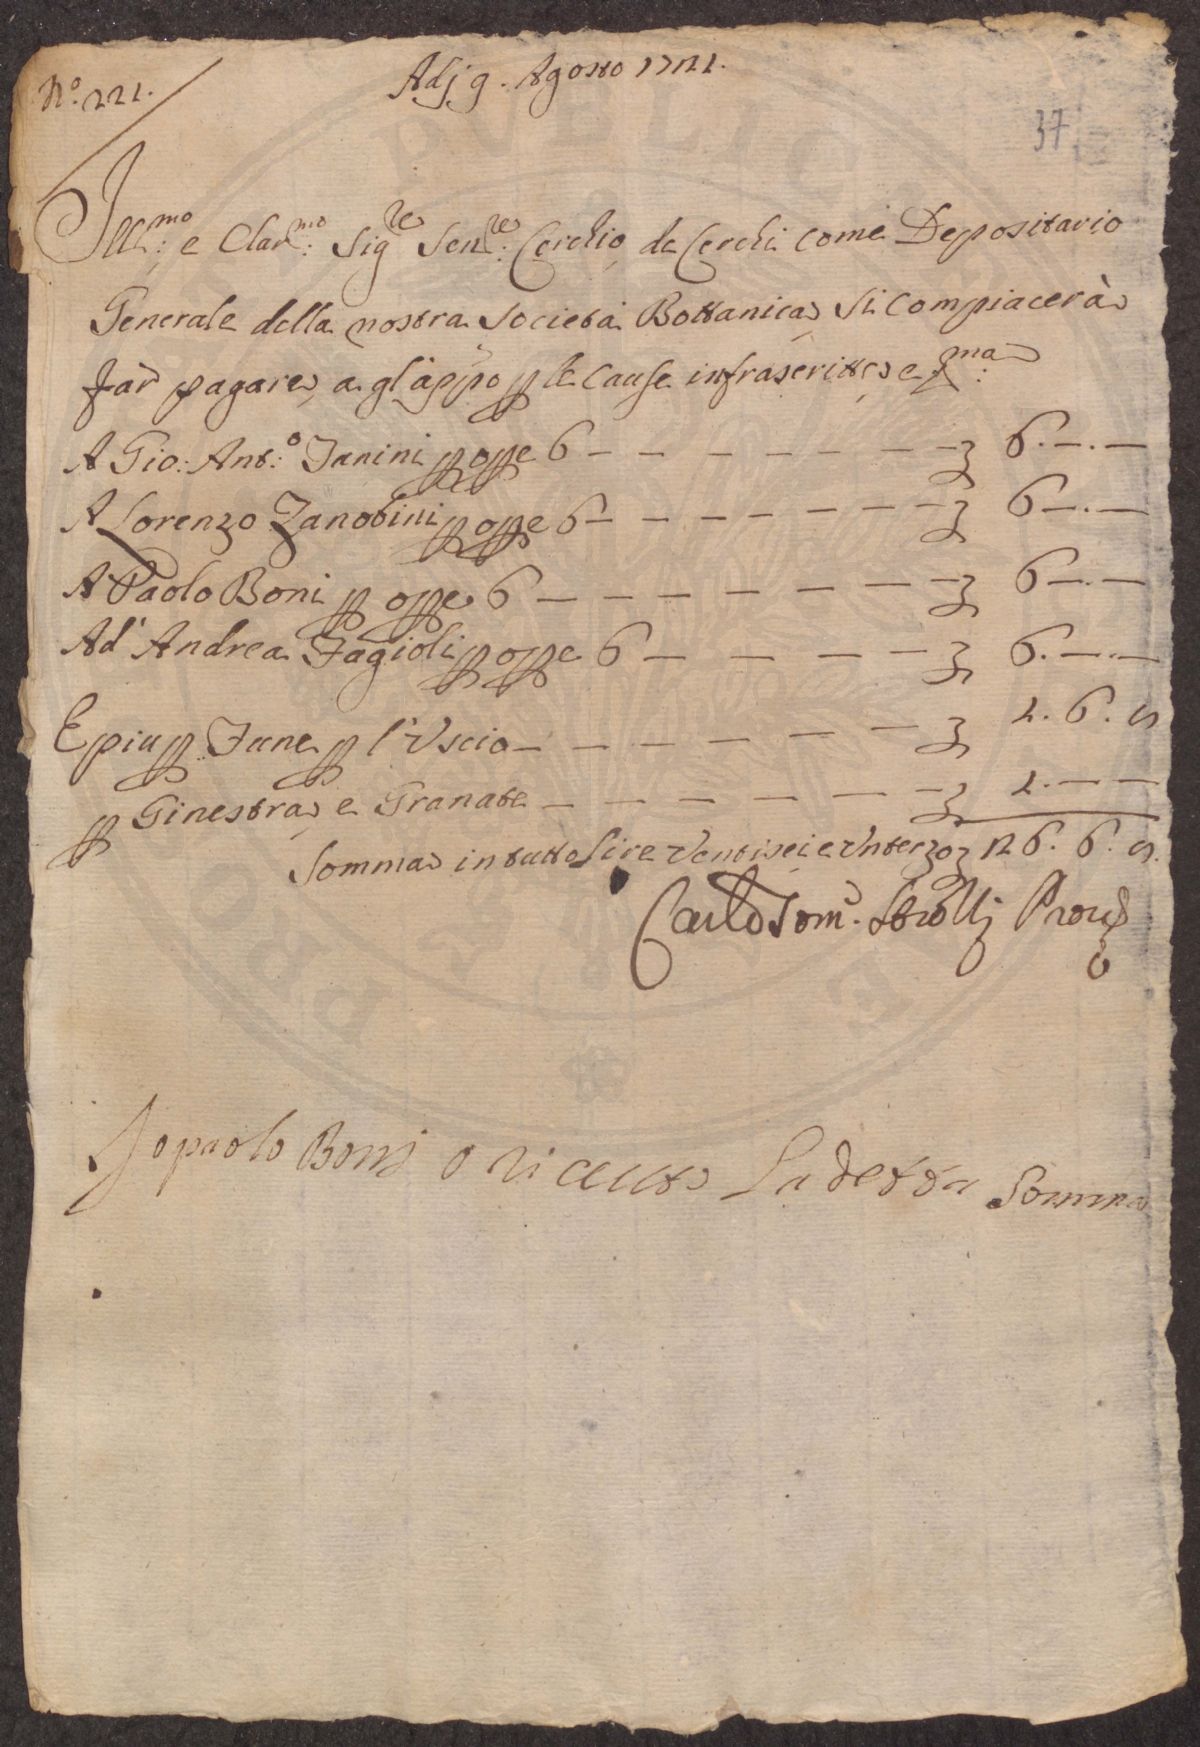 N.º 221.
Adj 9. Agosto 1721.
37
Ill.mo e Clar.mo Sig.re Sen.re Cerchio de Cerchi come Depositario
Generale della nostra Società Bottanica si compiacerà
far pagare a gl'appo p le Cause infrascritte e p.ma
A Gio: Ant.º Fanini p opre 6 — — — — — — — 6.—.—
A Lorenzo Zanobini p opre 6 — — — — — — — 6—.—
A Paolo Boni p opre 6 — — — — — — — 6—.—
Ad' Andrea Fagioli p opre 6 — — — — — 6.—.—
E piu p Fune p l'Uscio — — — — — — — 2. 6. 8
p Ginestra e Granate — — — — — — — 2.—.—
Somma in tutto Lire Ventisei e Unterzo 26. 6. 8.
Carlo Tom.º Strozzi Prove
Jo paolo Boni o riceuto La detta Somma